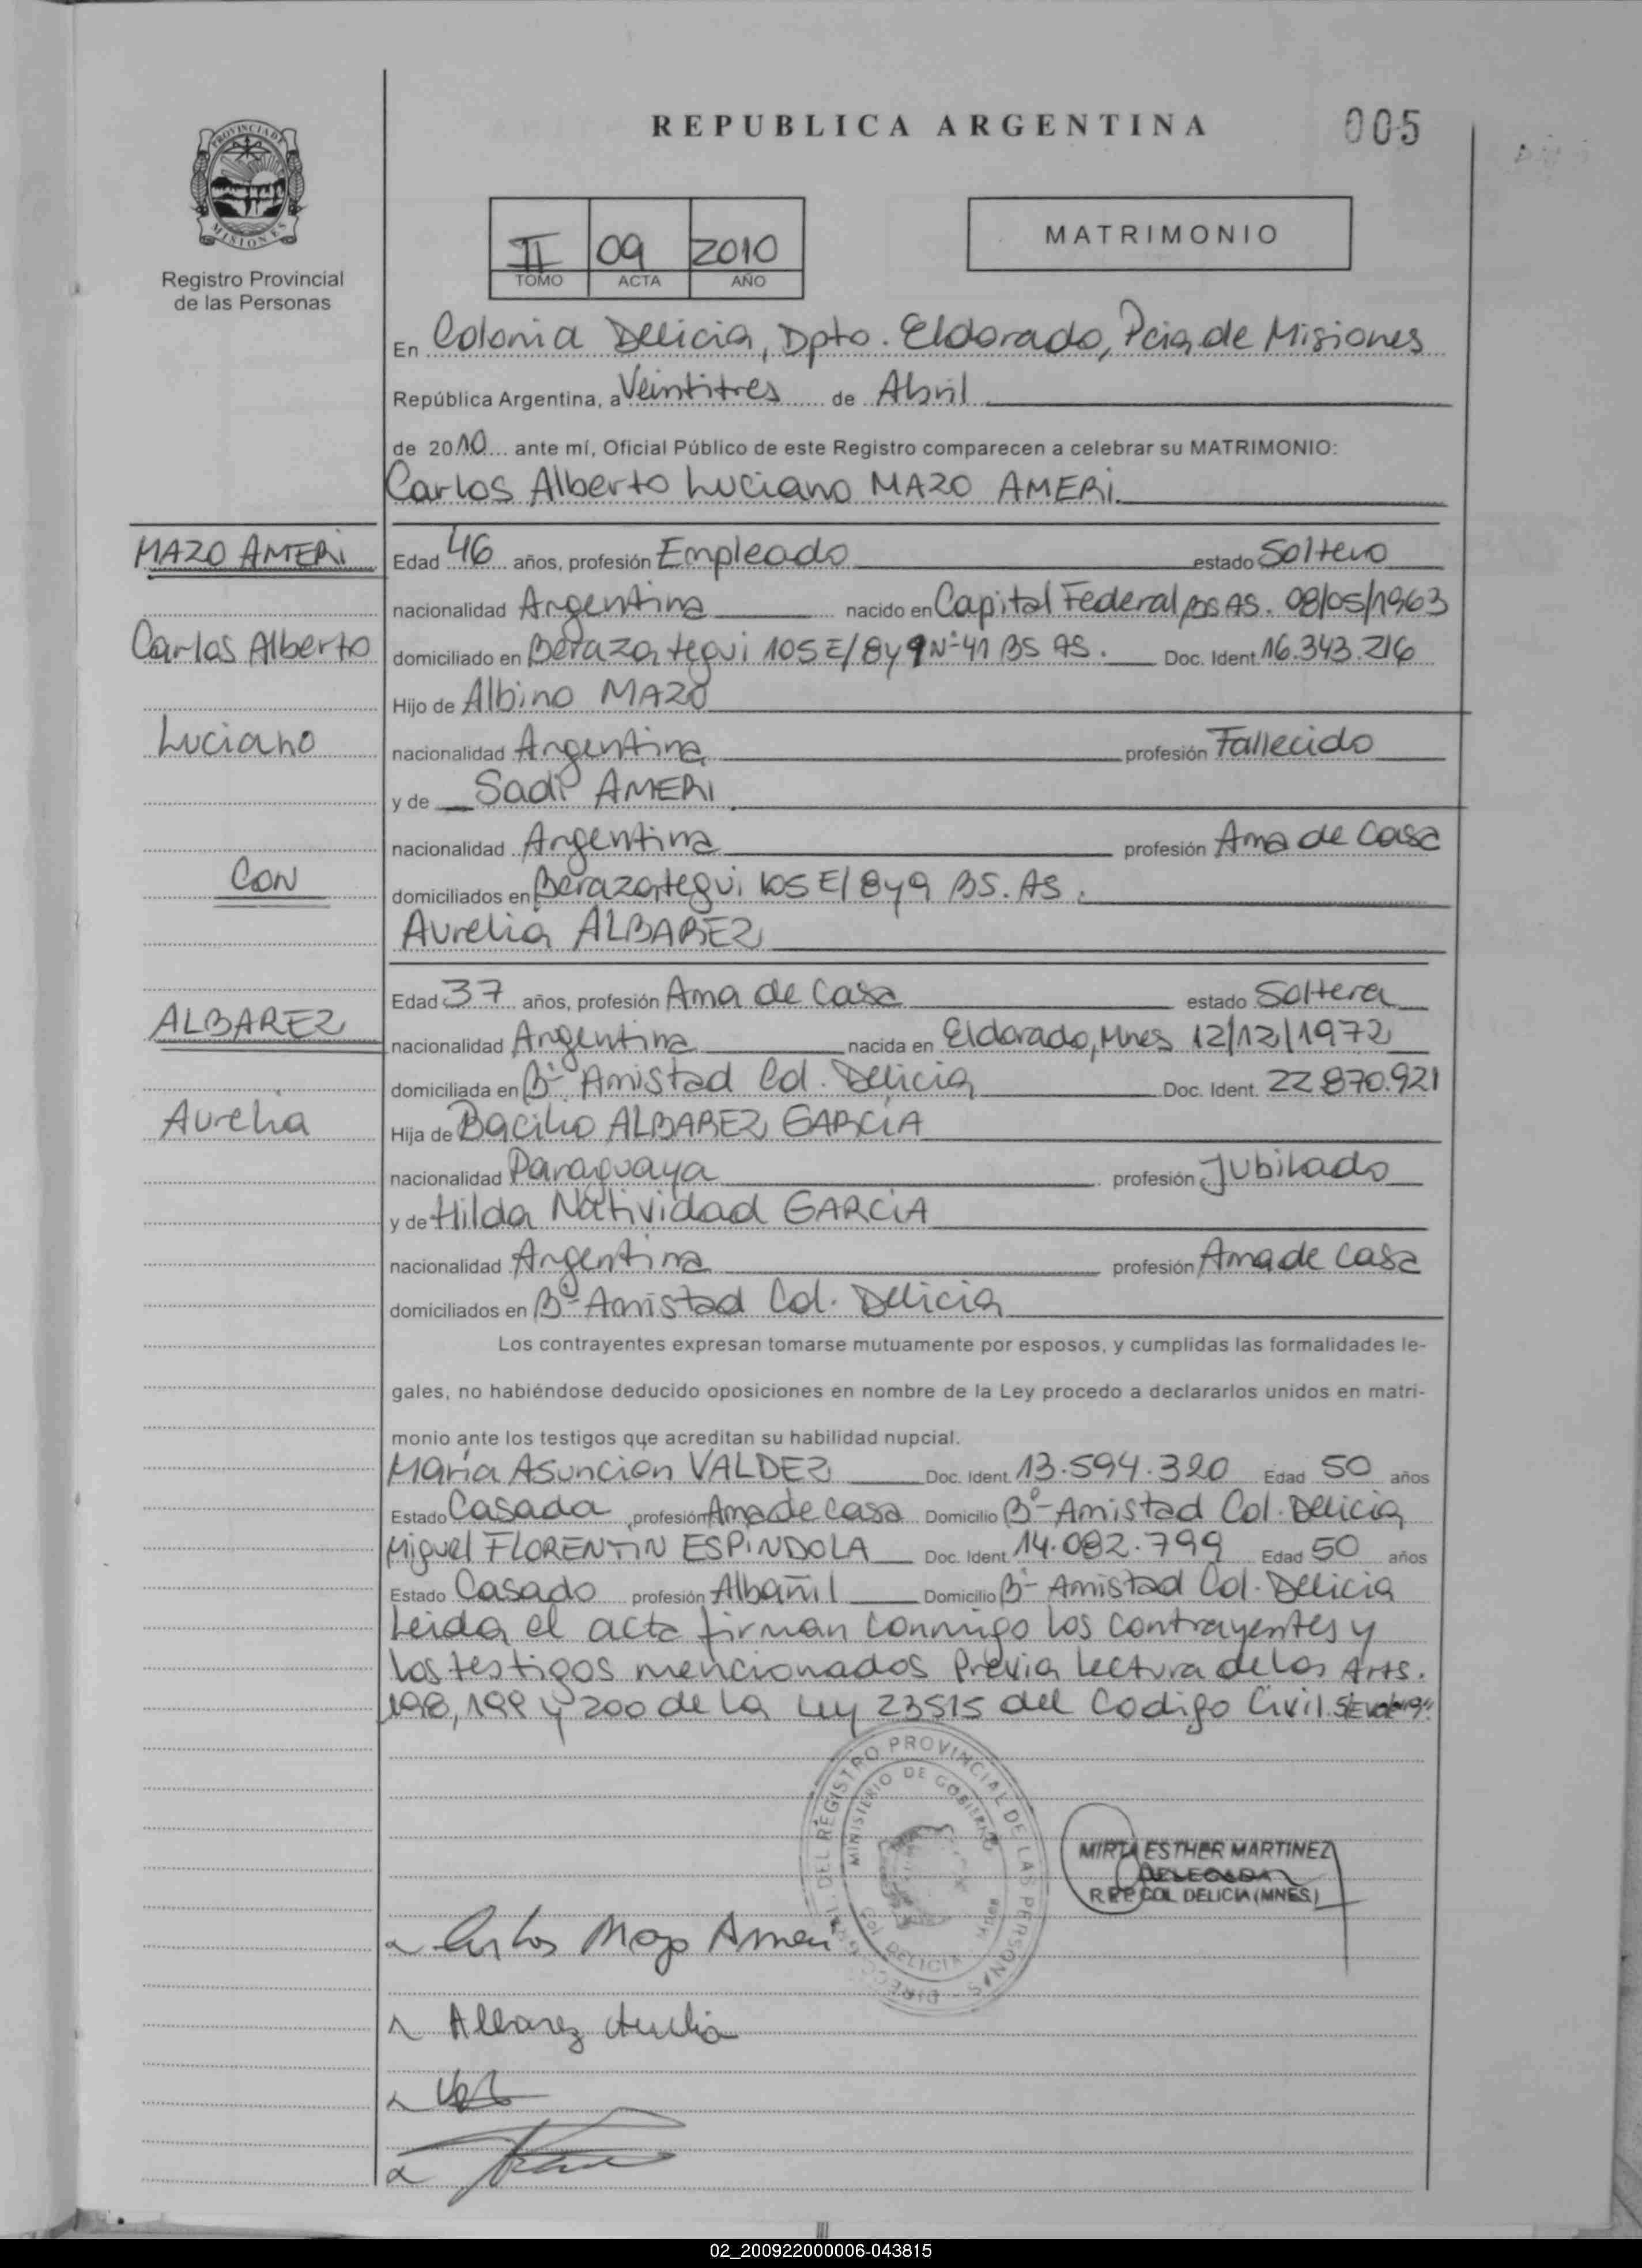 REPUBLICA ARGENTINA
005
PROVINCIA DE
MISIONES
Registro Provincial
de las Personas
II 09 2010
TOMO ACTA AÑO
MATRIMONIO
En Colonia Delicia, Dpto. Eldorado, Pcia de Misiones
República Argentina, a Veintitres de Abril
de 2010 ante mí, Oficial Público de este Registro comparecen a celebrar su MATRIMONIO:
Carlos Alberto Luciano MAZO AMERI.
MAZO AMERI
Carlos Alberto
Luciano
CON
ALBAREZ
Aurelia
Edad 46 años, profesión Empleado estado Soltero
nacionalidad Argentina nacido en Capital Federal BS AS. 08/05/1963
domiciliado en Berazategui 105 E/ 8 y 9 N° 41 BS AS. Doc. Ident. 16.343.216
Hijo de Albino MAZO
nacionalidad Argentina profesión Fallecido
y de Sadi AMERI.
nacionalidad Argentina profesión Ama de Casa
domiciliados en Berazategui 105 E/ 8 y 9 BS. AS.
Aurelia ALBAREZ
Edad 37 años, profesión Ama de Casa estado Soltera
nacionalidad Argentina nacida en Eldorado, Mnes 12/12/1972
domiciliada en B° Amistad Col. Delicia Doc. Ident. 22.870.921
Hija de Bacilio ALBAREZ GARCIA
nacionalidad Paraguaya profesión Jubilado
y de Hilda Natividad GARCIA
nacionalidad Argentina profesión Ama de casa
domiciliados en B° Amistad Col. Delicia
Los contrayentes expresan tomarse mutuamente por esposos, y cumplidas las formalidades le-
gales, no habiéndose deducido oposiciones en nombre de la Ley procedo a declararlos unidos en matri-
monio ante los testigos que acreditan su habilidad nupcial.
María Asuncion VALDEZ Doc. Ident. 13.594.320 Edad 50 años
Estado Casada profesión Ama de casa Domicilio B° Amistad Col. Delicia
Miguel FLORENTIN ESPINDOLA Doc. Ident. 14.082.799 Edad 50 años
Estado Casado profesión Albañil Domicilio B° Amistad Col. Delicia
Leida el acta firman conmigo los contrayentes y
los testigos mencionados Previa lectura de los Arts.
198, 199 y 200 de la Ley 23515 del Codigo Civil.
DEL REGISTRO PROVINCIAL DE LAS PERSONAS
MINISTERIO DE GOBIERNO
Col DELICIA Mnes
MIRTA ESTHER MARTINEZ
DELEGADA
R.P.P. COL. DELICIA (MNES.)
Carlos Mazo Ameri
Albarez Aurelia
02_200922000006-043815